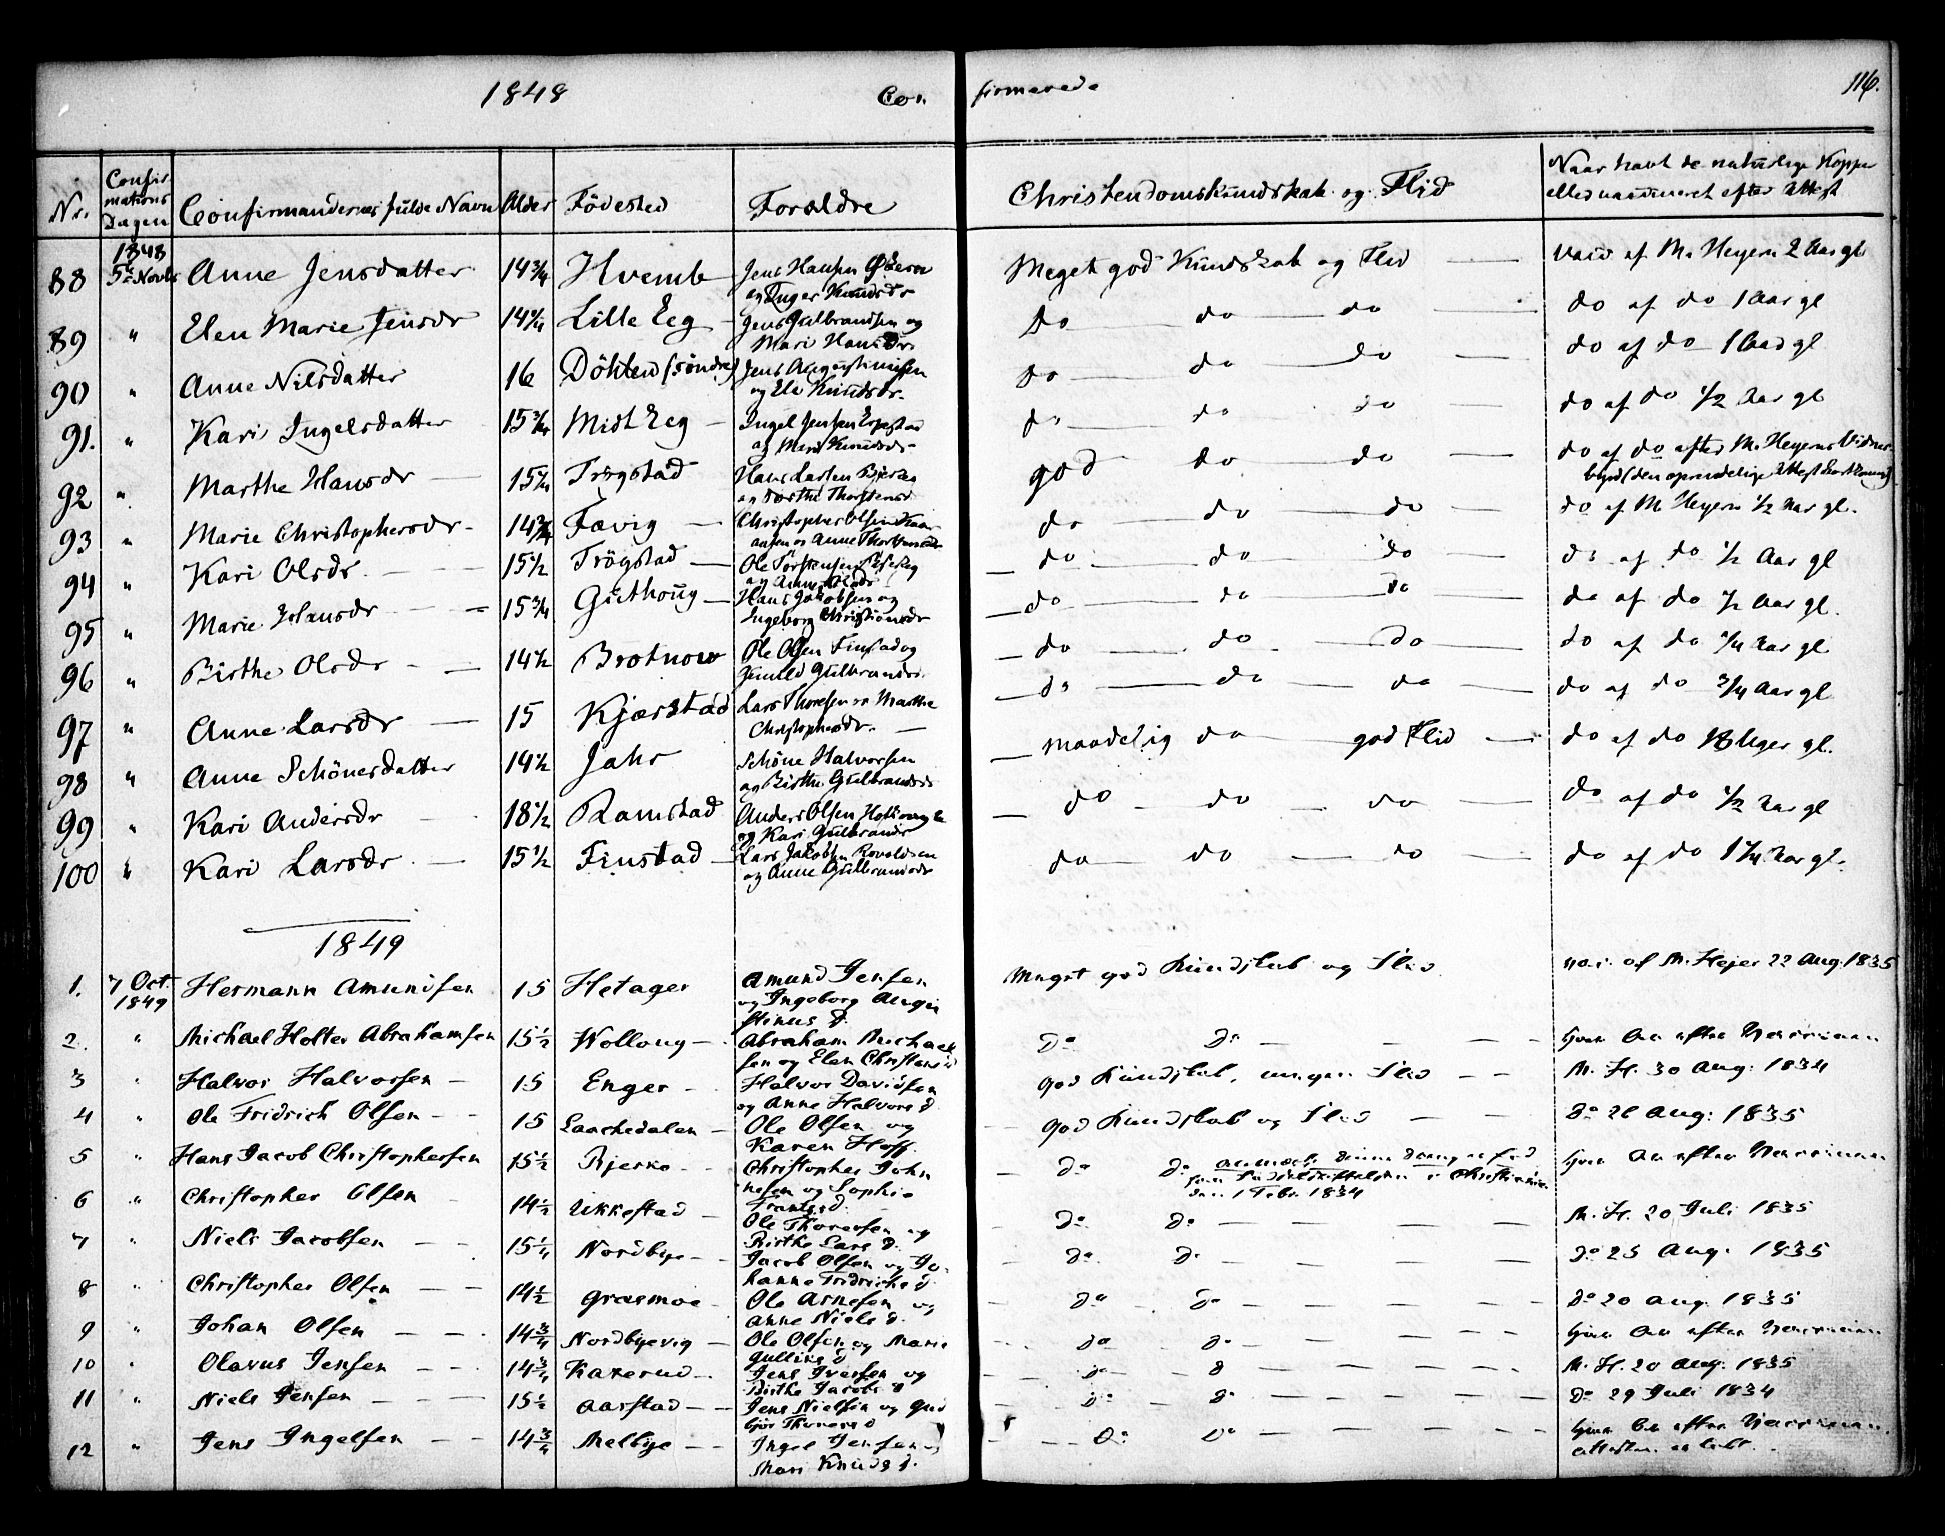 1848 Con firmerede 116.
Nr. Confirmations Dagen Confirmandernes fulde Navn Alder Födested Forældre Christendomskundskab og Flid Naar havt de naturlige Kopper eller vaccineret efter Attest
1848
88 5te Novbr Anne Jensdatter 14 3/4 Hvemb Jens Hansen og Inger Knudsdr Meget god Kundskab og Flid vacc af M. Heyern 2 Aar gl
89 " Elen Marie Jensdr 14 1/4 Lille Eeg Jens Gulbrandsen og Mari Hansdr do do do do af do 1 Aar gl
90 " Anne Nilsdatter 16 Döhlen (söndre) Jens Augustinusen og Eli Knudsdr. do do do do af do 1 Aar gl
91. " Kari Ingelsdatter 15 3/4 Midt Eeg Ingel Jensen og Mari Knudsdr do do do do af do 1/2 Aar gl
92 " Marthe Hansdr 15 1/4 Trögstad Hans Larsen og Dorthe Thorstensd god do do do af do efter M. Heyerns Vidnesbyrd (den oprindelige Attest bortkommet)
93 " Marie Christophersdr 14 3/4 Fævig Christopher Olsen og Anne do do do do af M Heyern 1/2 Aar gl.
94 " Kari Olsdr 15 1/2 Trögstad Ole Torstensen og Anne do do do do af do 1/2 Aar gl
95 " Marie Hansdr 15 3/4 Guthoug Hans Jakobsen og Ingeborg Christiansdr do do do do af do 1/2 Aar gl.
96 " Birthe Olsdr 14 1/2 Brotnow Ole Olsen Finstad og Gunild Gulbrandsd. do do do do af do 1/4 Aar gl
97 " Anne Larsdr 15 Kjærstad Lars Thoresen og Marthe Christophersdr. do do do do af do 3/4 Aar gl
98 " Anne Schönersdatter 14 1/2 Jahr Schöne Halvorsen og Birthe Gulbrandsdr maadelig do god Flid do af do 18 Uger gl.
99 " Kari Andersdr 18 1/2 Ramstad Anders Olsen og Kari Gulbrandsdr do do do do af do 1/2 Aar gl
100 " Kari Larsdr 15 1/2 Finstad Lars Jakobsen og Anne Gulbrandsdr do do do do af do 1 1/4 Aar gl.
1849
1. 7 Oct. 1849 Hermann Amundsen 15 Hetager Amund Jensen og Ingeborg Augustinus d. Meget god Kundskab og Flid vac. af M. Hejer 22 Aug. 1835
2. " Michael Holter Abrahamsen 15 1/2 Wolloug Abraham Michaelsen og Elen Christans d do do
3 " Halvor Halvorsen 15 Enger Halvor Davidsen og Anne Halvors d. god Kundskab, megen Flid M. H. 30 Aug. 1834
4 " Ole Fridrich Olsen 15 Laachedalen Ole Olsen og Karen Hoff. god Kundskab og Flid do 26 Aug: 1835
5 " Hans Jacob Christophersen 15 1/2 Bjerke Christopher Johnnesen og Sophie Frants d. do do den 1 Febr. 1834
6 " Christopher Olsen 14 1/2 Ukkestad Ole Thoresen og Birthe Lars d. do do M. H. 20 Juli 1835
7 " Niels Jacobsen 15 1/4 Nordbye Jacob Olsen og Johanne Fridrichs d do do do 25 Aug. 1835
8 " Christopher Olsen 14 1/2 Græsmoe Ole Arnesen og Anne Niels d. do do do 20 Aug. 1835
9 " Johan Olsen 14 3/4 Nordbyevig Ole Olsen og Marie Gulliks d do do
10 " Olavus Jensen 14 3/4 Kaxerud Jens Iversen og Birthe Jacobs d do d M. H. 20 Aug. 1835
11 " Niels Jensen 15 1/2 Aarstad Jens Nielsen og Gubjör Thorers d do do do 29 Juli 1834
12 " Jens Ingelsen 14 3/4 Melbye Ingel Jensen og Mari Knuds d. do do